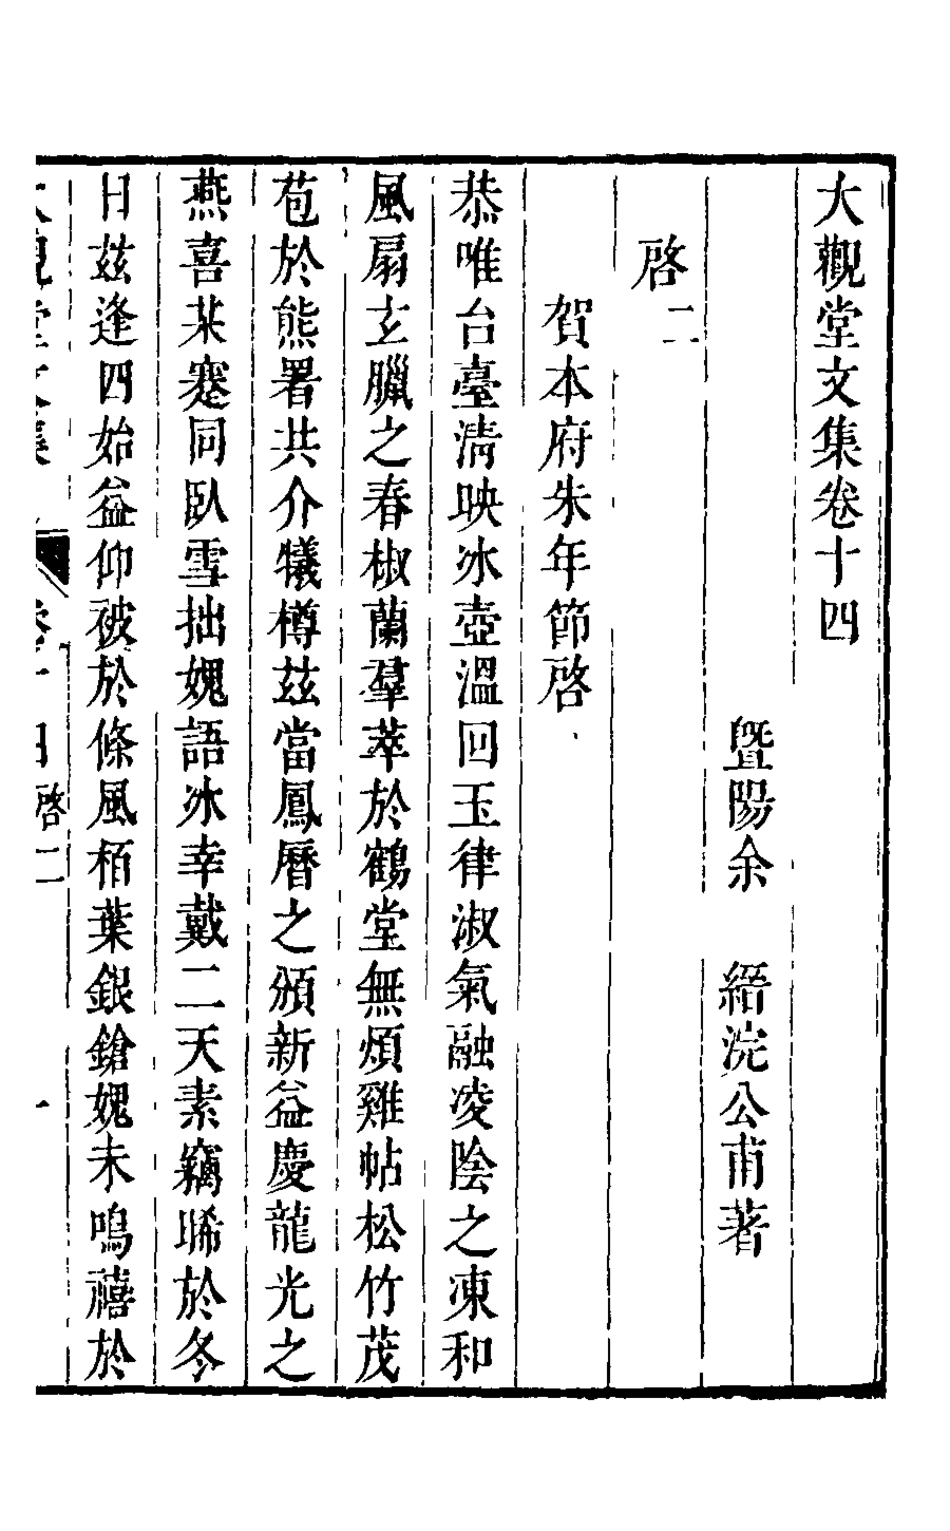 大觀堂文集卷十四
暨陽余 縉浣公甫著
啓二
賀本府朱年節啓
恭唯台臺清映冰壺溫回玉律淑氣融凌陰之凍和
風扇玄臘之春椒蘭羣萃於鶴堂無煩雞帖松竹茂
苞於熊署共介犧樽玆當鳳曆之頒新益慶龍光之
燕喜某蹇同臥雪拙媿語冰幸戴二天素竊晞於冬
日玆逢四始益仰被於條風栢葉銀鎗媿未鳴禧於
大觀堂文集 卷十四 啓二 一